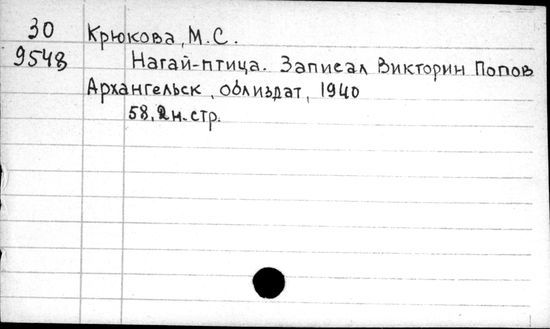 30 Крюкова, М.С.
9548 Нагай-птица. Записал Викторин Попов
Архангельск, облиздат, 1940
58, 2н.стр.